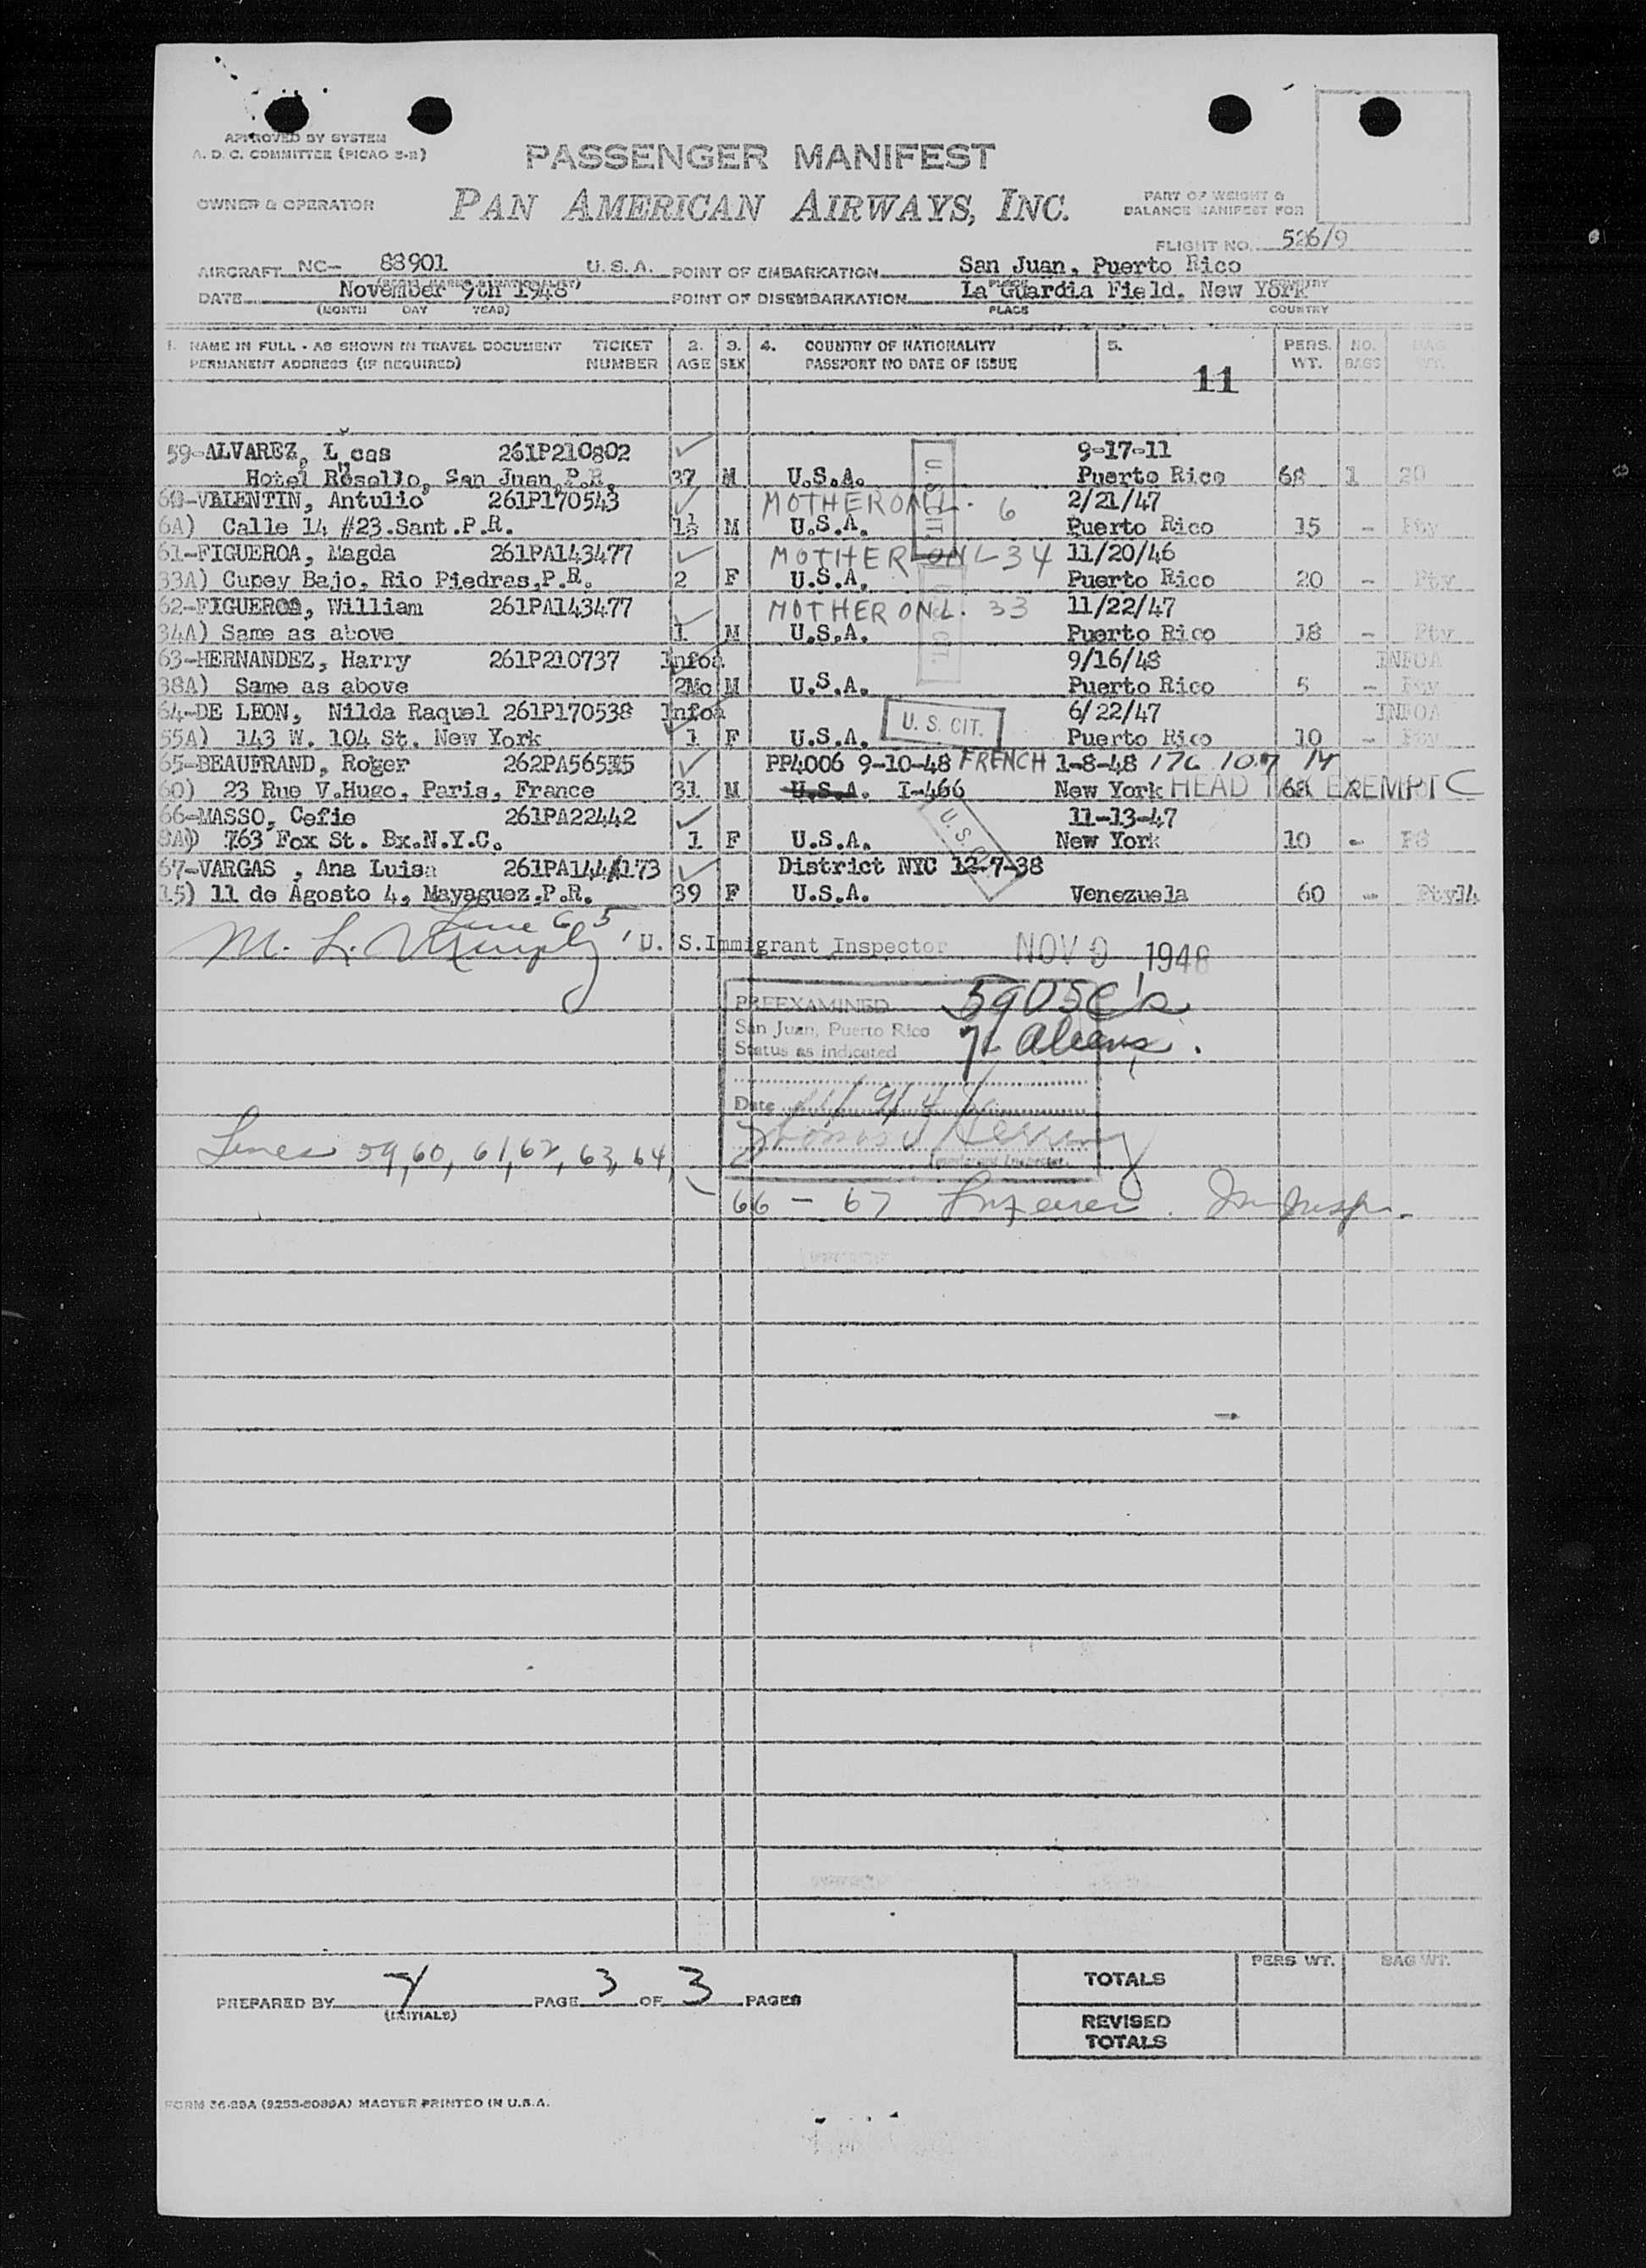 APPROVED BY SYSTEM
A. D. C. COMMITTEE (PICAO 5-2)
PASSENGER MANIFEST
OWNER & OPERATOR
PAN AMERICAN AIRWAYS, INC.
PART OF WEIGHT &
BALANCE MANIFEST FOR
FLIGHT NO. 526/9
AIRCRAFT NC- 88901 U.S.A. POINT OF EMBARKATION San Juan, Puerto Rico
DATE November 9th 1948 POINT OF DISEMBARKATION La Guardia Field, New York
(MONTH DAY YEAR) PLACE COUNTRY
1. NAME IN FULL - AS SHOWN IN TRAVEL DOCUMENT TICKET 2. 3. 4. COUNTRY OF NATIONALITY 5. PERS. NO. BAG
PERMANENT ADDRESS (IF REQUIRED) NUMBER AGE SEX PASSPORT NO DATE OF ISSUE WT. BAGS WT.
11
59-ALVAREZ, Lucas 261P210802 9-17-11
Hotel Rosello, San Juan,P.R. 37 M U.S.A. Puerto Rico 68 1 20
60-VALENTIN, Antulio 261P170543 MOTHER ON L. 6 2/21/47
6A) Calle 14 #23.Sant.P.R. 1½ M U.S.A. Puerto Rico 15 - Pty
U.S. CIT.
61-FIGUEROA, Magda 261PA143477 MOTHER ON L 34 11/20/46
33A) Cupey Bajo, Rio Piedras,P.R. 2 F U.S.A. Puerto Rico 20 - Pty
62-FIGUEROA, William 261PA143477 MOTHER ON L. 33 11/22/47
34A) Same as above 1 M U.S.A. Puerto Rico 18 - Pty
63-HERNANDEZ, Harry 261P210737 Infoa 9/16/48 INFOA
38A) Same as above 2Mo M U.S.A. Puerto Rico 5 - Pty
64-DE LEON, Nilda Raquel 261P170538 Infoa U. S. CIT. 6/22/47 INFOA
55A) 143 W. 104 St. New York 1 F U.S.A. Puerto Rico 10 - Pty
65-BEAUFRAND, Roger PP4006 9-10-48 FRENCH 1-8-48 176 107 14
60) 23 Rue V.Hugo, Paris, France 31 M U.S.A. I-466 New York HEAD TAX EXEMPT C 68
66-MASSO, Cefie 261PA22442 11-13-47
8A) 763 Fox St. Bx.N.Y.C. 1 F U.S.A. New York 10 -
67-VARGAS , Ana Luisa District NYC 12-7-38
15) 11 de Agosto 4, Mayaguez.P.R. 39 F U.S.A. Venezuela 60 - Pty14
Line 65
M. L. Murphy, U. S.Immigrant Inspector NOV 9 1948
PREEXAMINED
San Juan, Puerto Rico
Status as indicated
Aliens.
Date
Immigrant Inspector.
Lines 59, 60, 61, 62, 63, 64,
66 - 67 Im Insp.
TOTALS PERS WT. BAG WT.
PREPARED BY PAGE 3 OF 3 PAGES
(INITIALS)
REVISED
TOTALS
FORM 36-29A (9253-6089A) MASTER PRINTED IN U.S.A.